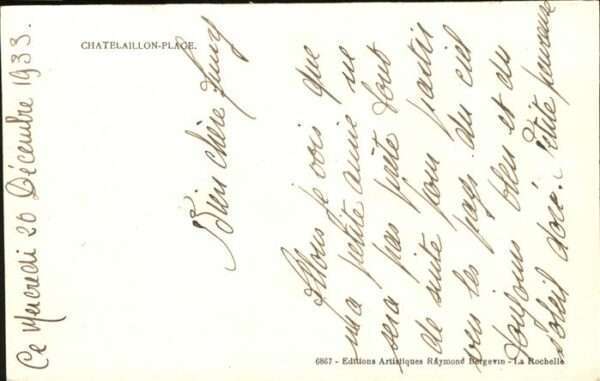 CHATELAILLON-PLAGE.
Ce Mercredi 20 Décembre 1933.
Bien chère
Allons je vois que
ma petite amie ne
sera pas prête tout
de suite pour partir
vers les pays du ciel
toujours bleu et du
soleil doré. Petite
6867 - Editions Artistiques Raymond Bergevin - La Rochelle